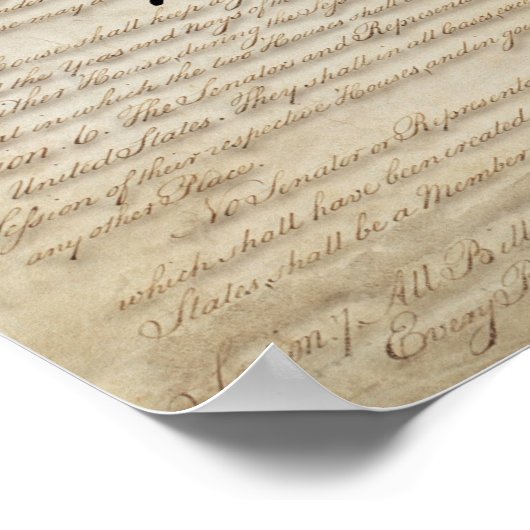 may
Houses shall keep a
the Yeas and Nays of the
other House, during the Sess
in which the two Houses shall
ion. 6. The Senators and Represent
United States. They shall in all Cases, exc
Session of their respective Houses, and in go
any other Place.
No Senator or Represent
which shall have been created
States, shall be a Member
Section. 7. All Bill
Every B